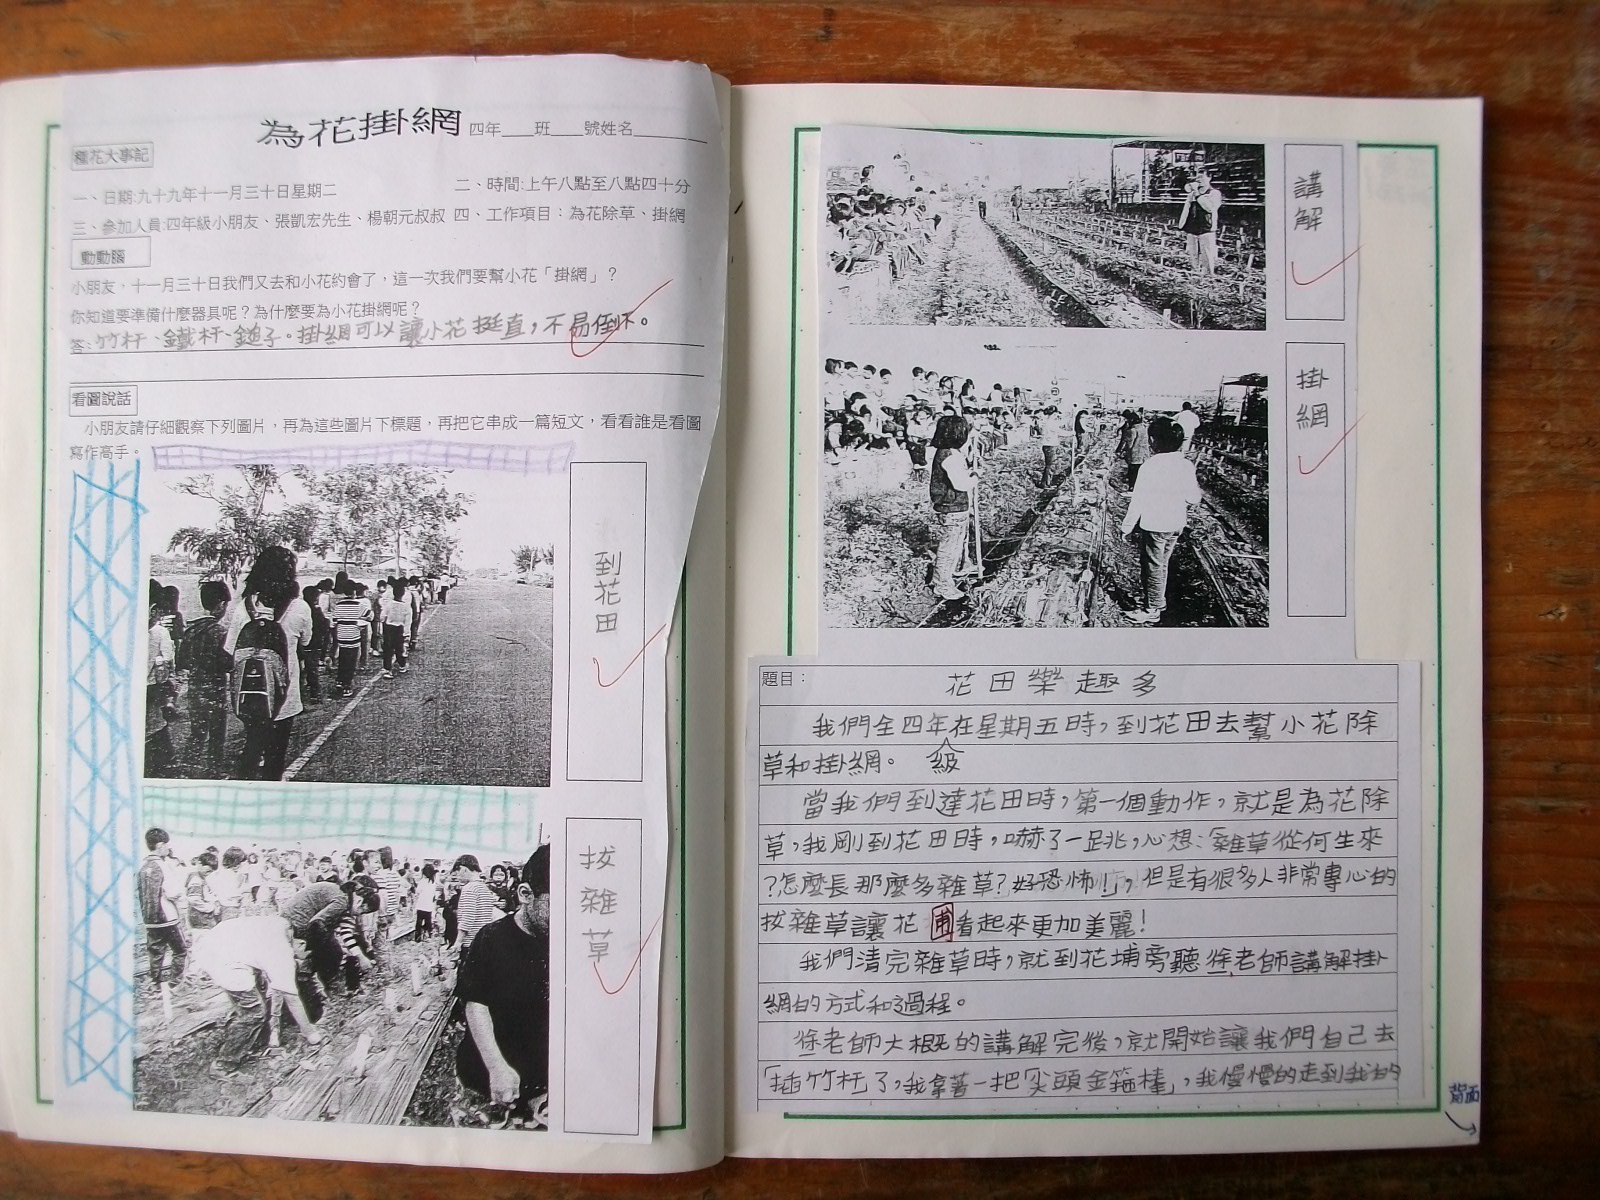 為花掛網 四年____班____號姓名________
種花大事記
一、日期:九十九年十一月三十日星期二 二、時間:上午八點至八點四十分
三、參加人員:四年級小朋友、張凱宏先生、楊朝元叔叔 四、工作項目：為花除草、掛網
動動腦
小朋友，十一月三十日我們又去和小花約會了，這一次我們要幫小花「掛網」？
你知道要準備什麼器具呢？為什麼要為小花掛網呢？
答:竹杆、鐵杆、鎚子。掛網可以讓小花挺直，不易倒下。
看圖說話
小朋友請仔細觀察下列圖片，再為這些圖片下標題，再把它串成一篇短文，看看誰是看圖
寫作高手。
到花田
拔雜草
講解
掛網
題目： 花田樂趣多
我們全四年級在星期五時，到花田去幫小花除
草和掛網。
當我們到達花田時，第一個動作，就是為花除
草，我剛到花田時，嚇了一跳，心想:「雜草從何生來
?怎麼長那麼多雜草?好恐怖!」，但是有很多人非常專心的
拔雜草讓花圃看起來更加美麗!
我們清完雜草時，就到花埔旁聽徐老師講解掛
網的方式和過程。
徐老師大概的講解完後，就開始讓我們自己去
「插竹杆了，我拿著一把「尖頭金箍棒」，我慢慢的走到我的
背面